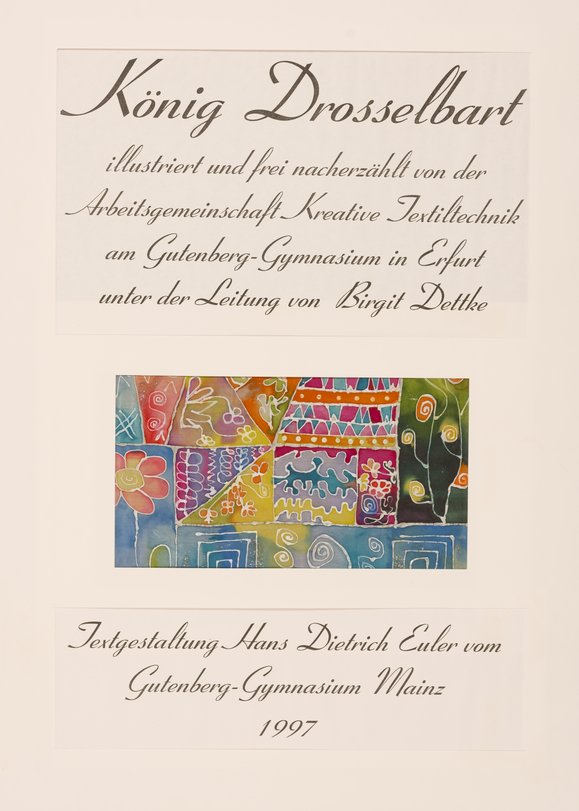 König Drosselbart
illustriert und frei nacherzählt von der
Arbeitsgemeinschaft Kreative Textiltechnik
am Gutenberg-Gymnasium in Erfurt
unter der Leitung von Birgit Dettke
Textgestaltung Hans Dietrich Euler vom
Gutenberg-Gymnasium Mainz
1997